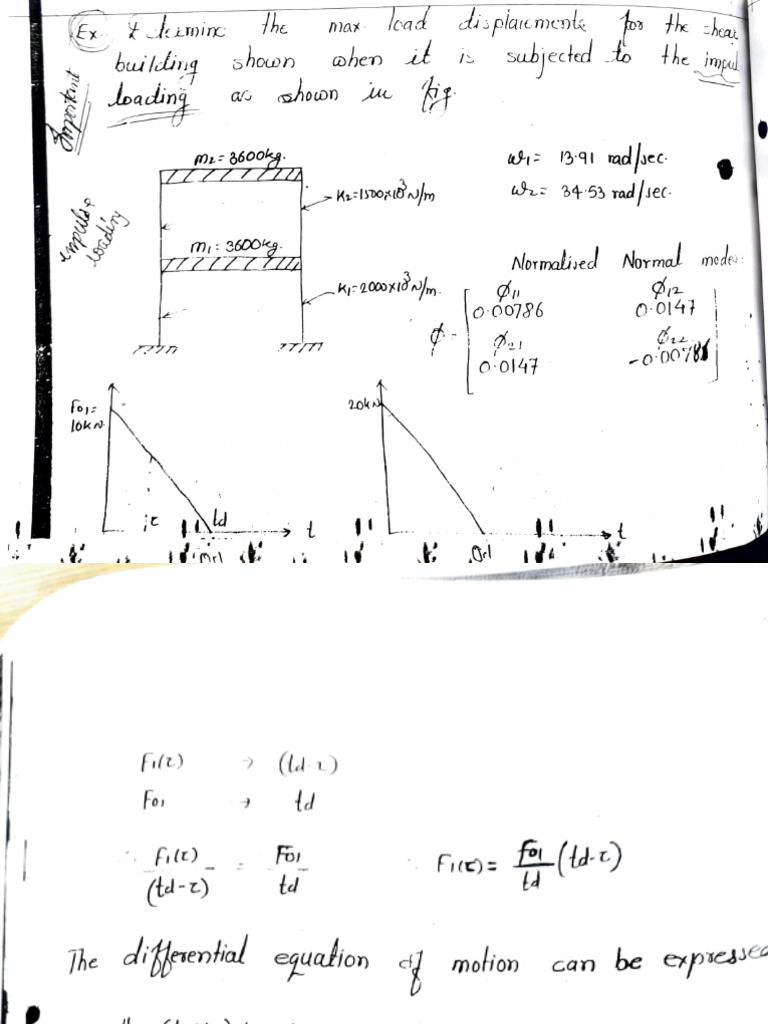 Ex. Determine the max. load displacements for the shear
building shown when it is subjected to the impul
loading as shown in fig.
Important
Impulse loading
m2 = 3600kg.
K2=1500×10³N/m
m1 = 3600kg.
K1=2000×10³N/m.
ω1 = 13.91 rad/sec.
ω2 = 34.53 rad/sec.
Normalised Normal modes:
ϕ11 ϕ12
0.00786 0.0147
ϕ =
ϕ21 ϕ22
0.0147 -0.00786
F01=
10kN
τ td t
0.1
20kN
t
0.1
F1(τ) → (td-τ)
F01 → td
∴ F1(τ)/(td-τ) = F01/td ∴ F1(τ) = F01/td (td-τ)
The differential equation of motion can be expressed